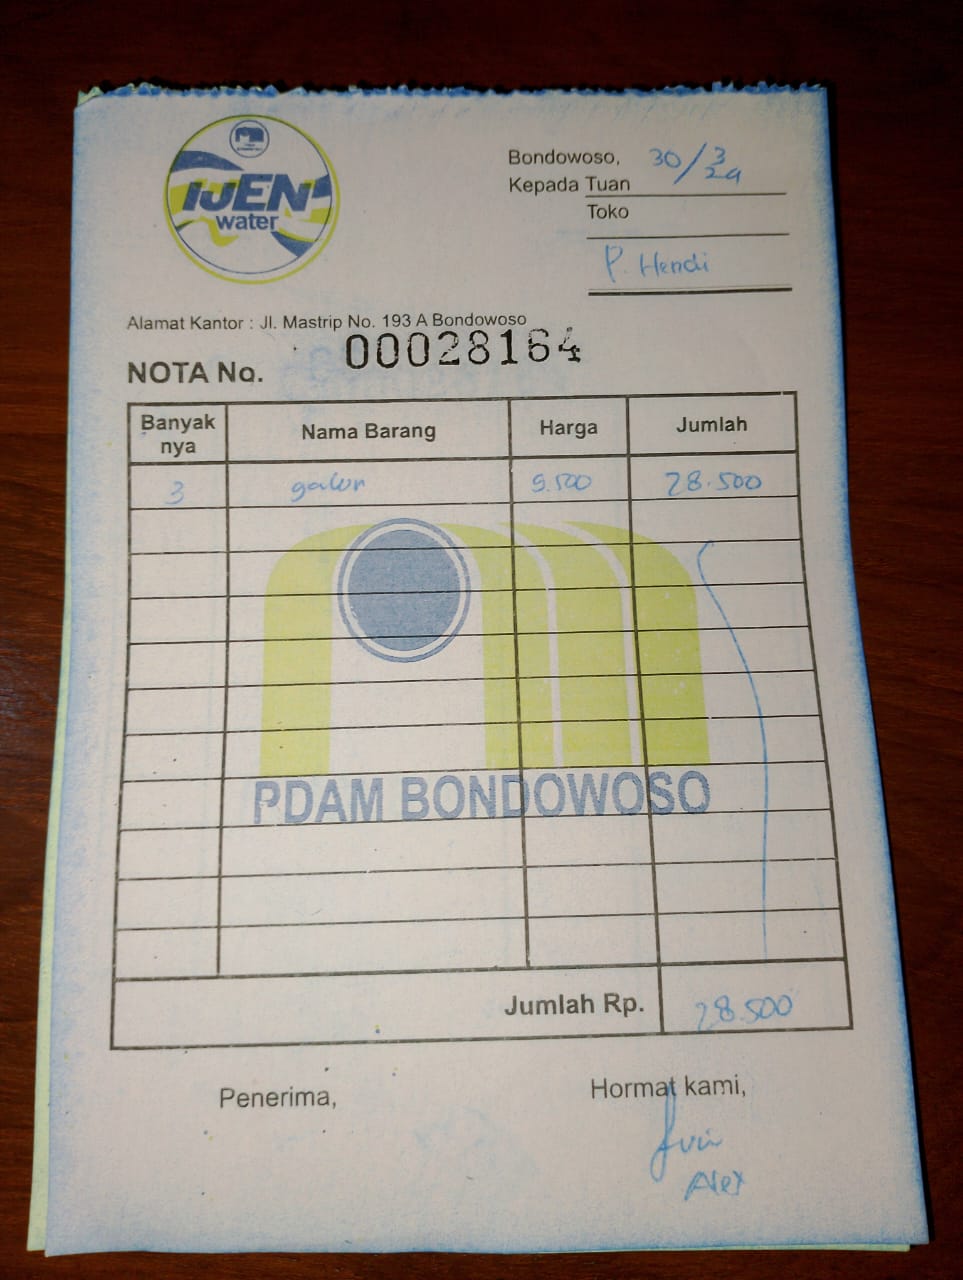 IJEN
water
Bondowoso, 30/3/24
Kepada Tuan
Toko
P. Hendi
Alamat Kantor : Jl. Mastrip No. 193 A Bondowoso
NOTA No. 00028164
Banyak nya Nama Barang Harga Jumlah
3 galon 9.500 28.500
PDAM BONDOWOSO
Jumlah Rp. 28.500
Penerima, Hormat kami,
Alex